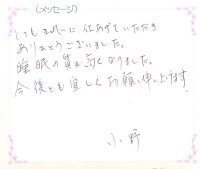 (メッセージ)
とてもきれいに仕あげていただき
ありがとうございました。
睡眠の質が高くなりました。
今後とも宜しくお願い申し上げます。
小野